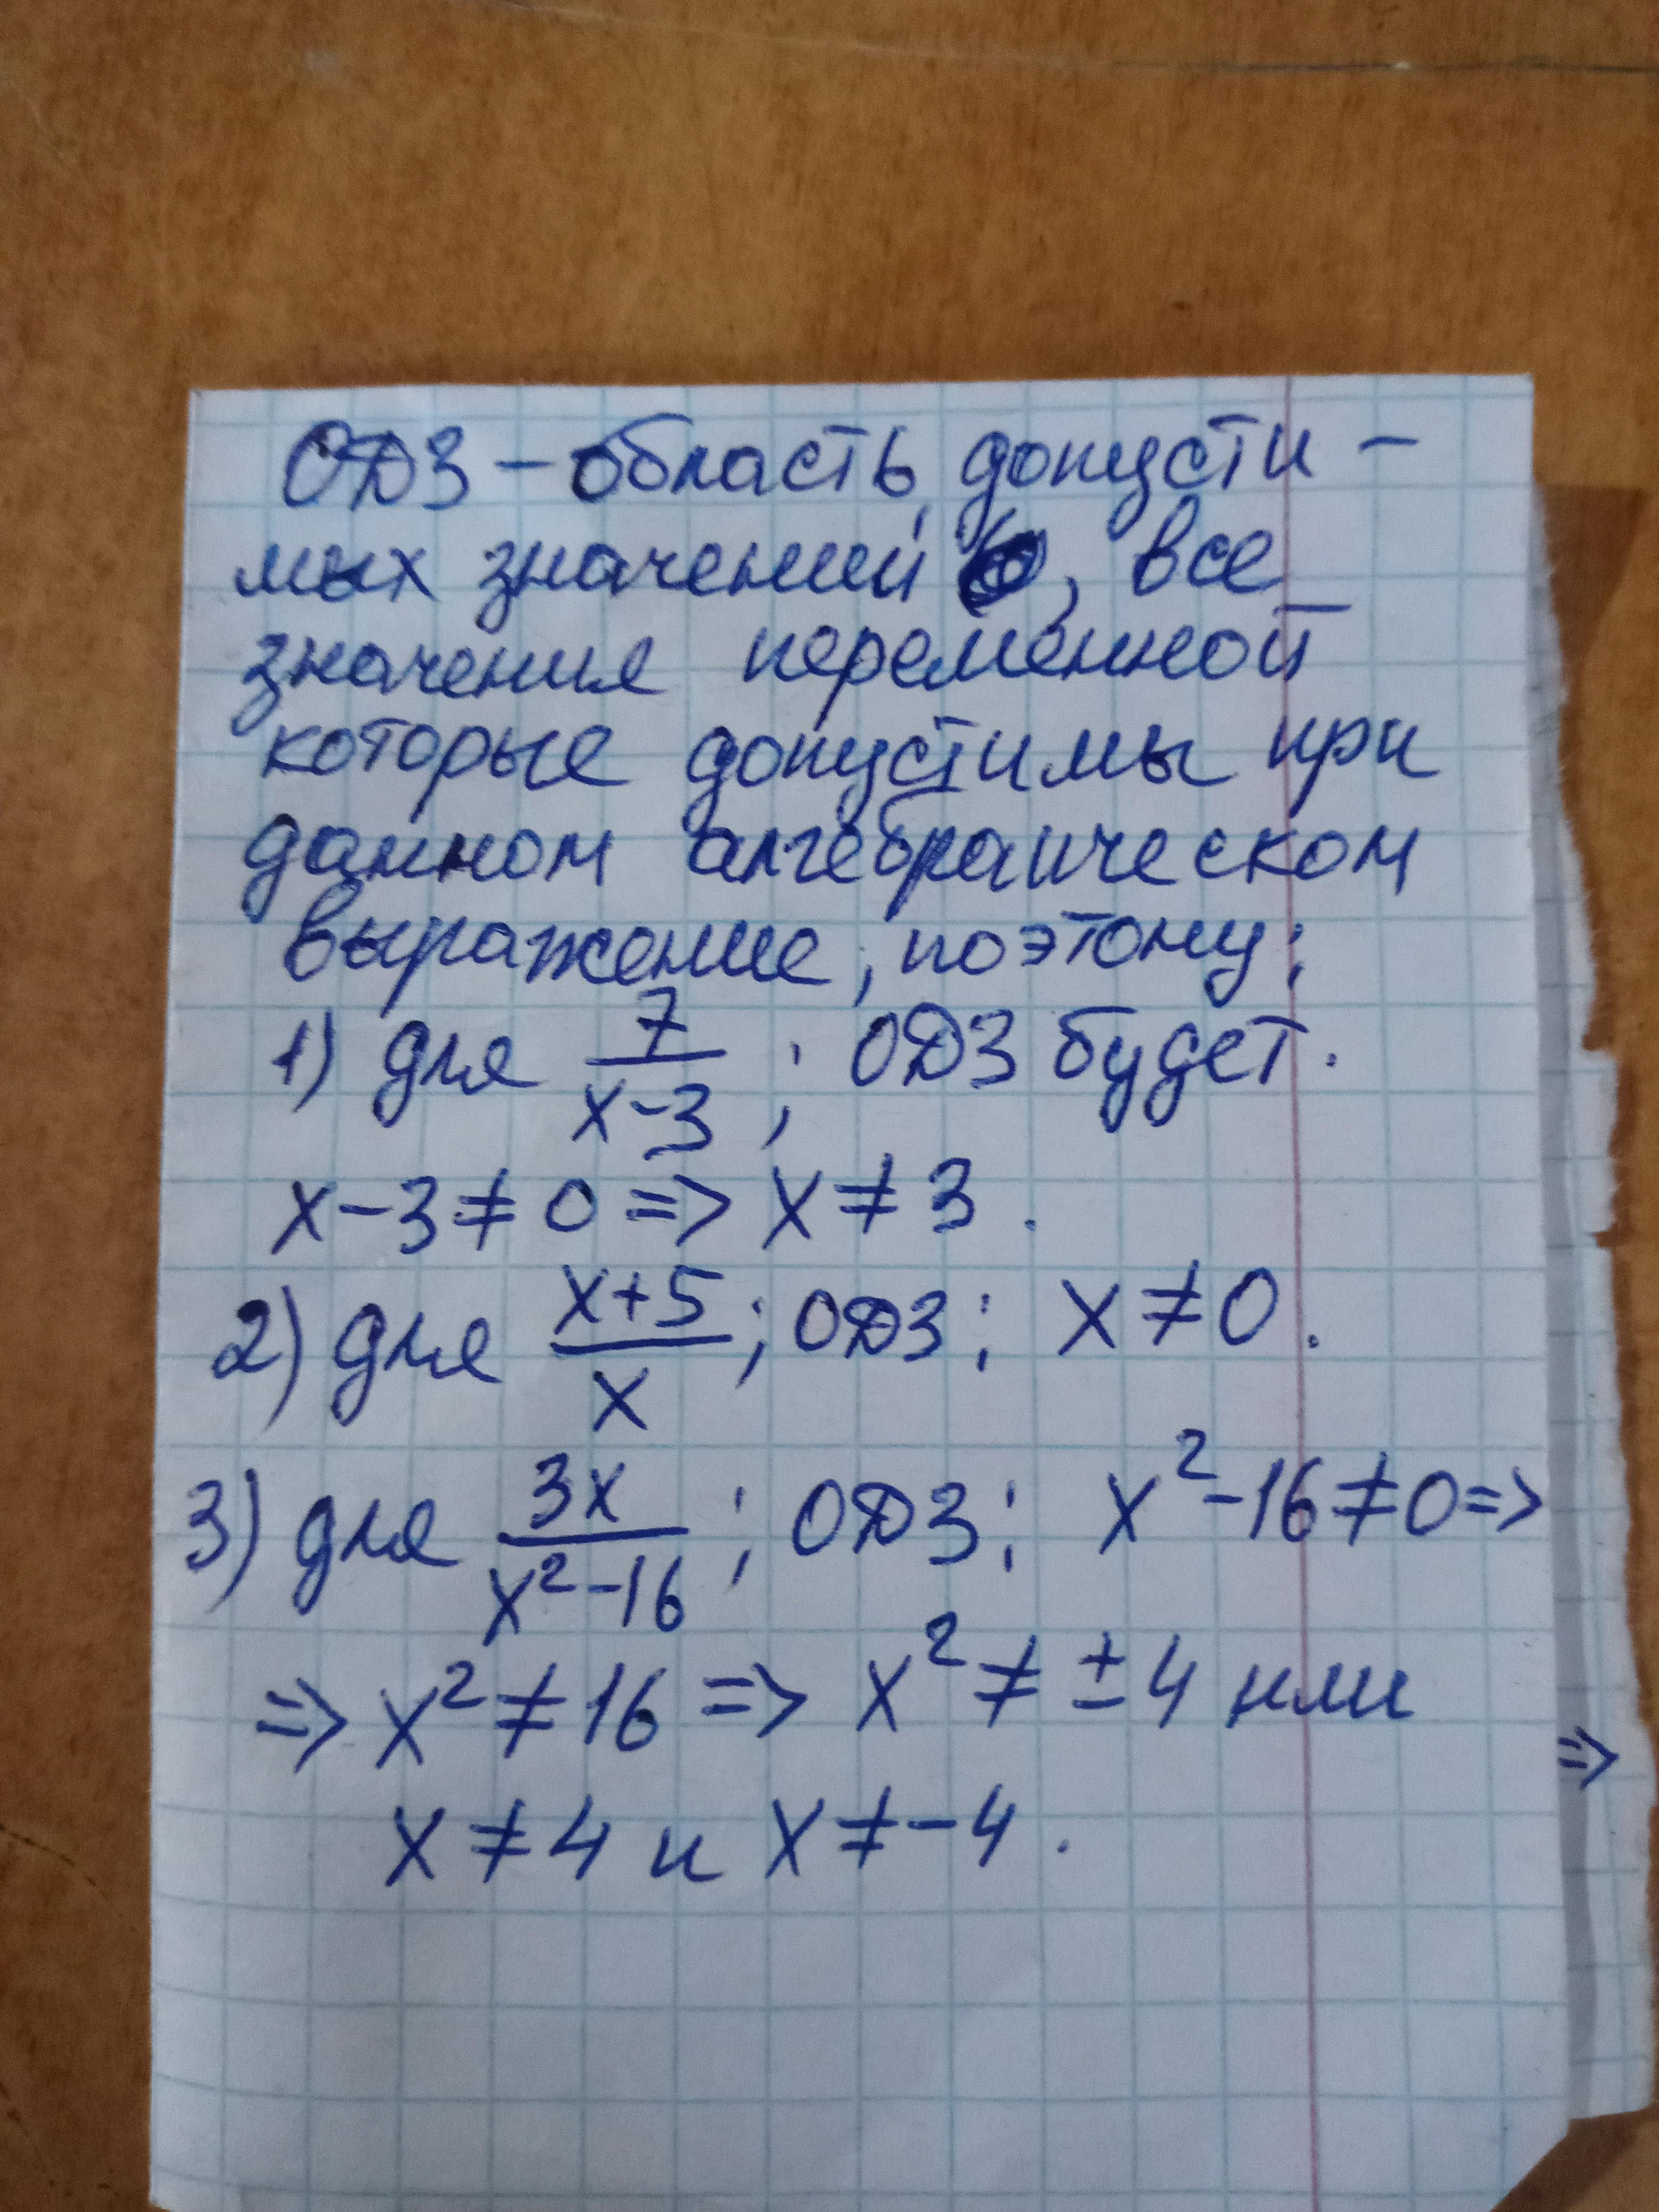 ОДЗ – область допусти –
мых значений , все
значения переменной
которые допустимы при
данном алгебраическом
выражение, поэтому:
1) для 7/(x-3) ; ОДЗ будет.
x-3≠0 => x≠3.
2) для (x+5)/x ; ОДЗ: x≠0.
3) для 3x/(x²-16) ; ОДЗ: x²-16≠0 =>
=> x²≠16 => x²≠±4 или
=>
x≠4 и x≠-4.